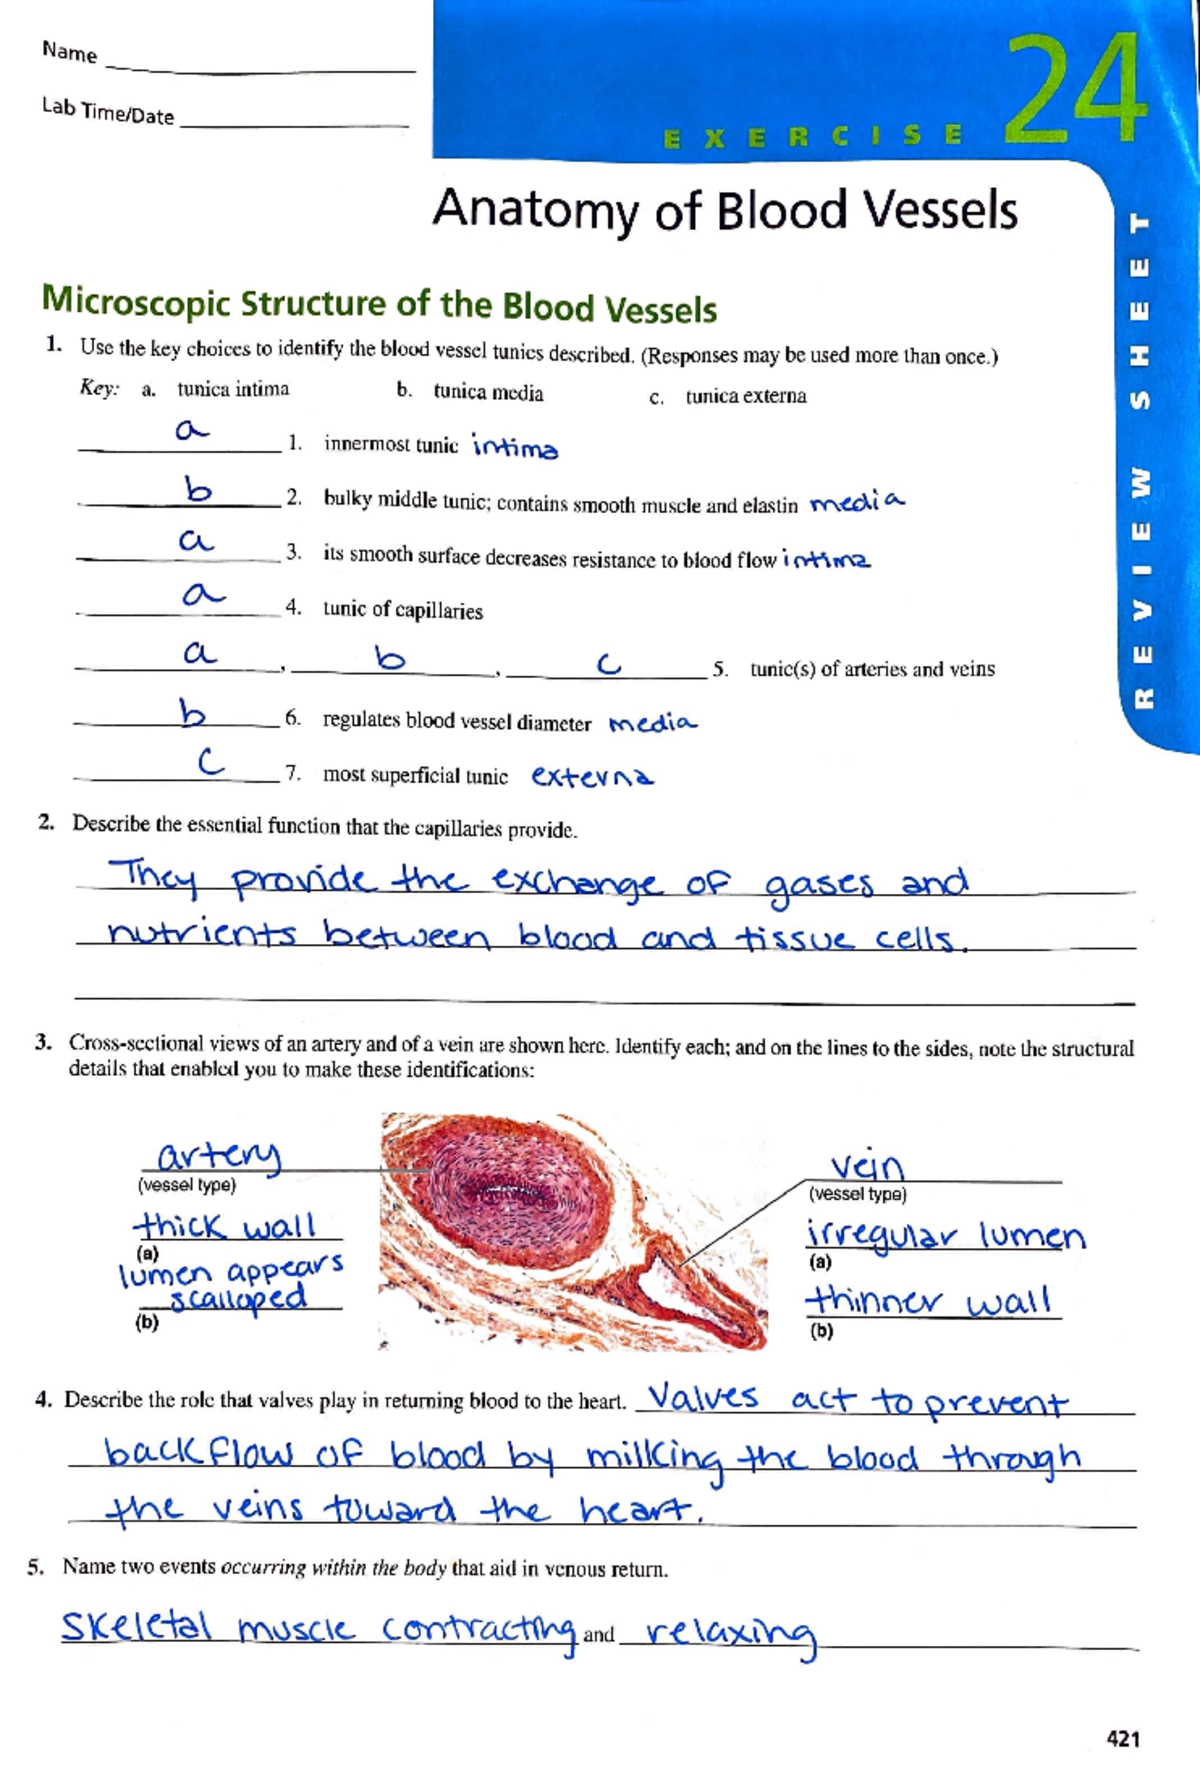 Name
Lab Time/Date
EXERCISE 24
REVIEW SHEET
Anatomy of Blood Vessels
Microscopic Structure of the Blood Vessels
1. Use the key choices to identify the blood vessel tunics described. (Responses may be used more than once.)
Key: a. tunica intima b. tunica media c. tunica externa
a 1. innermost tunic intima
b 2. bulky middle tunic; contains smooth muscle and elastin media
a 3. its smooth surface decreases resistance to blood flow intima
a 4. tunic of capillaries
a, b, c 5. tunic(s) of arteries and veins
b 6. regulates blood vessel diameter media
c 7. most superficial tunic externa
2. Describe the essential function that the capillaries provide.
They provide the exchange of gases and
nutrients between blood and tissue cells.
3. Cross-sectional views of an artery and of a vein are shown here. Identify each; and on the lines to the sides, note the structural
details that enabled you to make these identifications:
artery
(vessel type)
thick wall
(a)
lumen appears
scalloped
(b)
vein
(vessel type)
irregular lumen
(a)
thinner wall
(b)
4. Describe the role that valves play in returning blood to the heart. Valves act to prevent
backflow of blood by milking the blood through
the veins toward the heart.
5. Name two events occurring within the body that aid in venous return.
Skeletal muscle contracting and relaxing
421